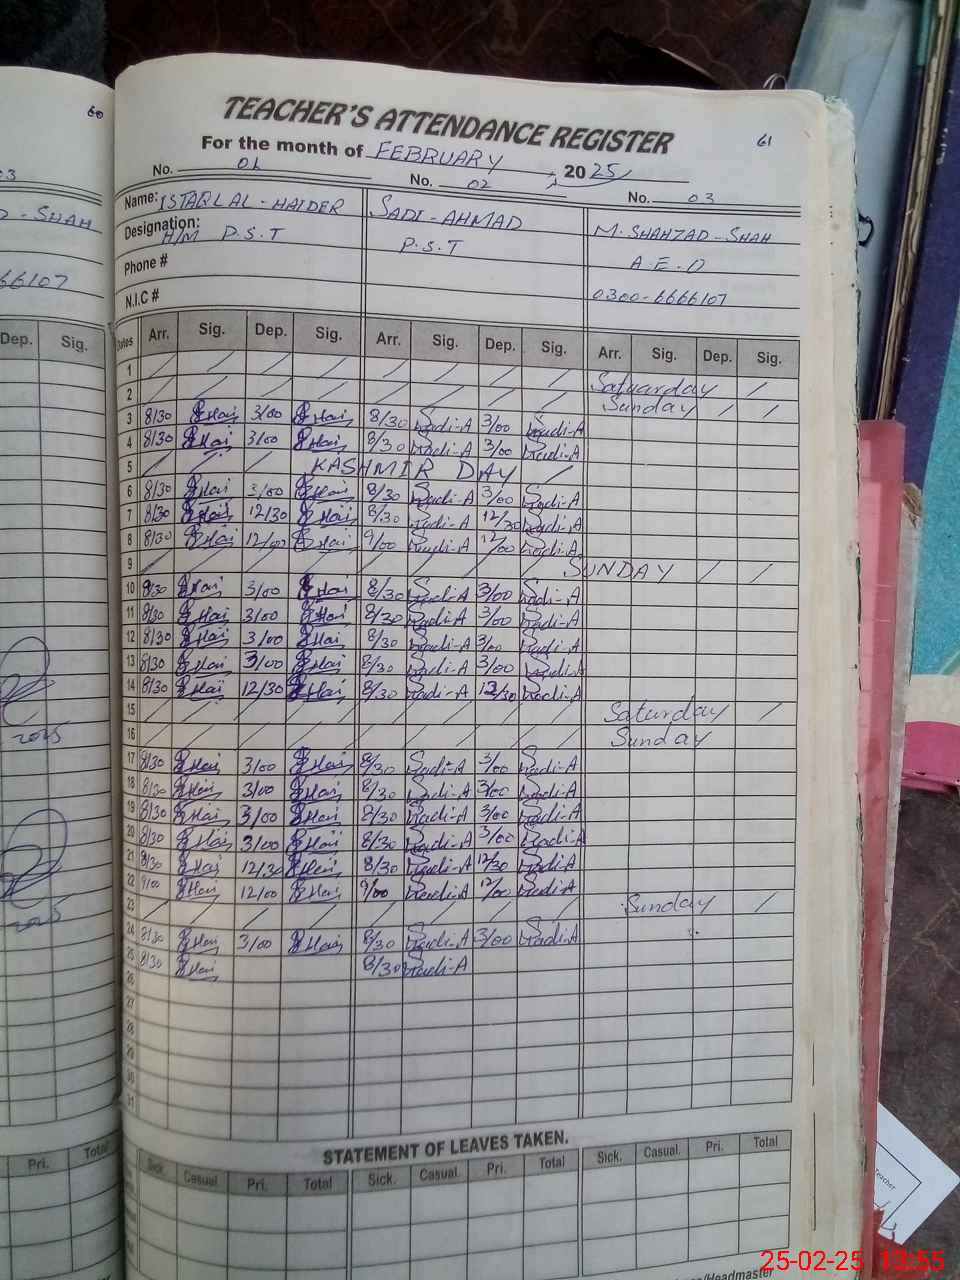 60
61
TEACHER'S ATTENDANCE REGISTER
For the month of FEBRUARY, 2025
No. 01 No. 02 No. 03
Name: HAIDER SADI-AHMAD M. SHAHZAD-SHAH
Designation: H/M P.S.T P.S.T A.E.O
Phone # 0300-6666107
N.I.C #
Dates Arr. Sig. Dep. Sig. Arr. Sig. Dep. Sig. Arr. Sig. Dep. Sig.
1 Satuarday
2 Sunday
3 8/30 Hai 3/00 Hai 8/30 Sadi-A 3/00 Sadi-A
4 8/30 Hai 3/00 Hai 8/30 Sadi-A 3/00 Sadi-A
5 KASHMIR DAY
6 8/30 Hai 3/00 Hai 8/30 Sadi-A 3/00 Sadi-A
7 8/30 Hai 12/30 Hai 8/30 Sadi-A 12/30 Sadi-A
8 8/30 Hai 12/00 Hai 9/00 Sadi-A 12/00 Sadi-A
9 SUNDAY
10 8/30 Hai 3/00 Hai 8/30 Sadi-A 3/00 Sadi-A
11 8/30 Hai 3/00 Hai 8/30 Sadi-A 3/00 Sadi-A
12 8/30 Hai 3/00 Hai 8/30 Sadi-A 3/00 Sadi-A
13 8/30 Hai 3/00 Hai 8/30 Sadi-A 3/00 Sadi-A
14 8/30 Hai 12/30 Hai 8/30 Sadi-A 12/30 Sadi-A
15 Saturday
16 Sunday
17 8/30 Hai 3/00 Hai 8/30 Sadi-A 3/00 Sadi-A
18 8/30 Hai 3/00 Hai 8/30 Sadi-A 3/00 Sadi-A
19 8/30 Hai 3/00 Hai 8/30 Sadi-A 3/00 Sadi-A
20 8/30 Hai 3/00 Hai 8/30 Sadi-A 3/00 Sadi-A
21 8/30 Hai 12/30 Hai 8/30 Sadi-A 12/30 Sadi-A
22 9/00 Hai 12/00 Hai 9/00 Sadi-A 12/00 Sadi-A
23 Sunday
24 8/30 Hai 3/00 Hai 8/30 Sadi-A 3/00 Sadi-A
25 8/30 Hai 8/30 Sadi-A
26
27
28
29
30
31
STATEMENT OF LEAVES TAKEN.
Sick. Casual. Pri. Total Sick. Casual. Pri. Total Sick. Casual. Pri. Total
/Headmaster
SHAH
66107
Dep. Sig.
2025
2025
Pri. Total
Teacher
25-02-25 13:55